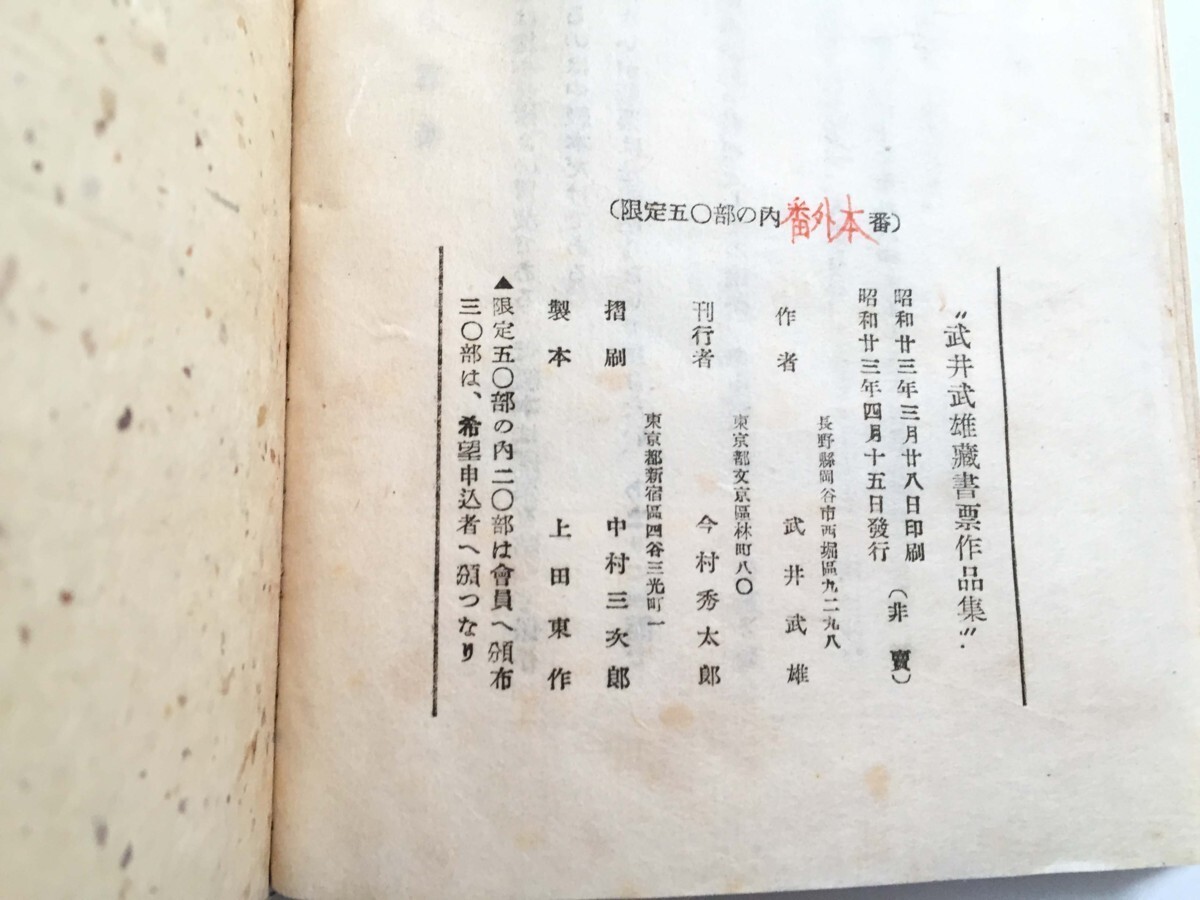 (限定五〇部の内番外本番)
"武井武雄藏書票作品集"
昭和廿三年三月廿八日印刷
昭和廿三年四月十五日發行 (非賣)
長野縣岡谷市西堀區九二九八
作者 武井武雄
東京都文京區林町八〇
刊行者 今村秀太郎
東京都新宿區四谷三光町一
摺刷 中村三次郎
製本 上田東作
▲限定五〇部の内二〇部は會員へ頒布
三〇部は、希望申込者へ頒つなり